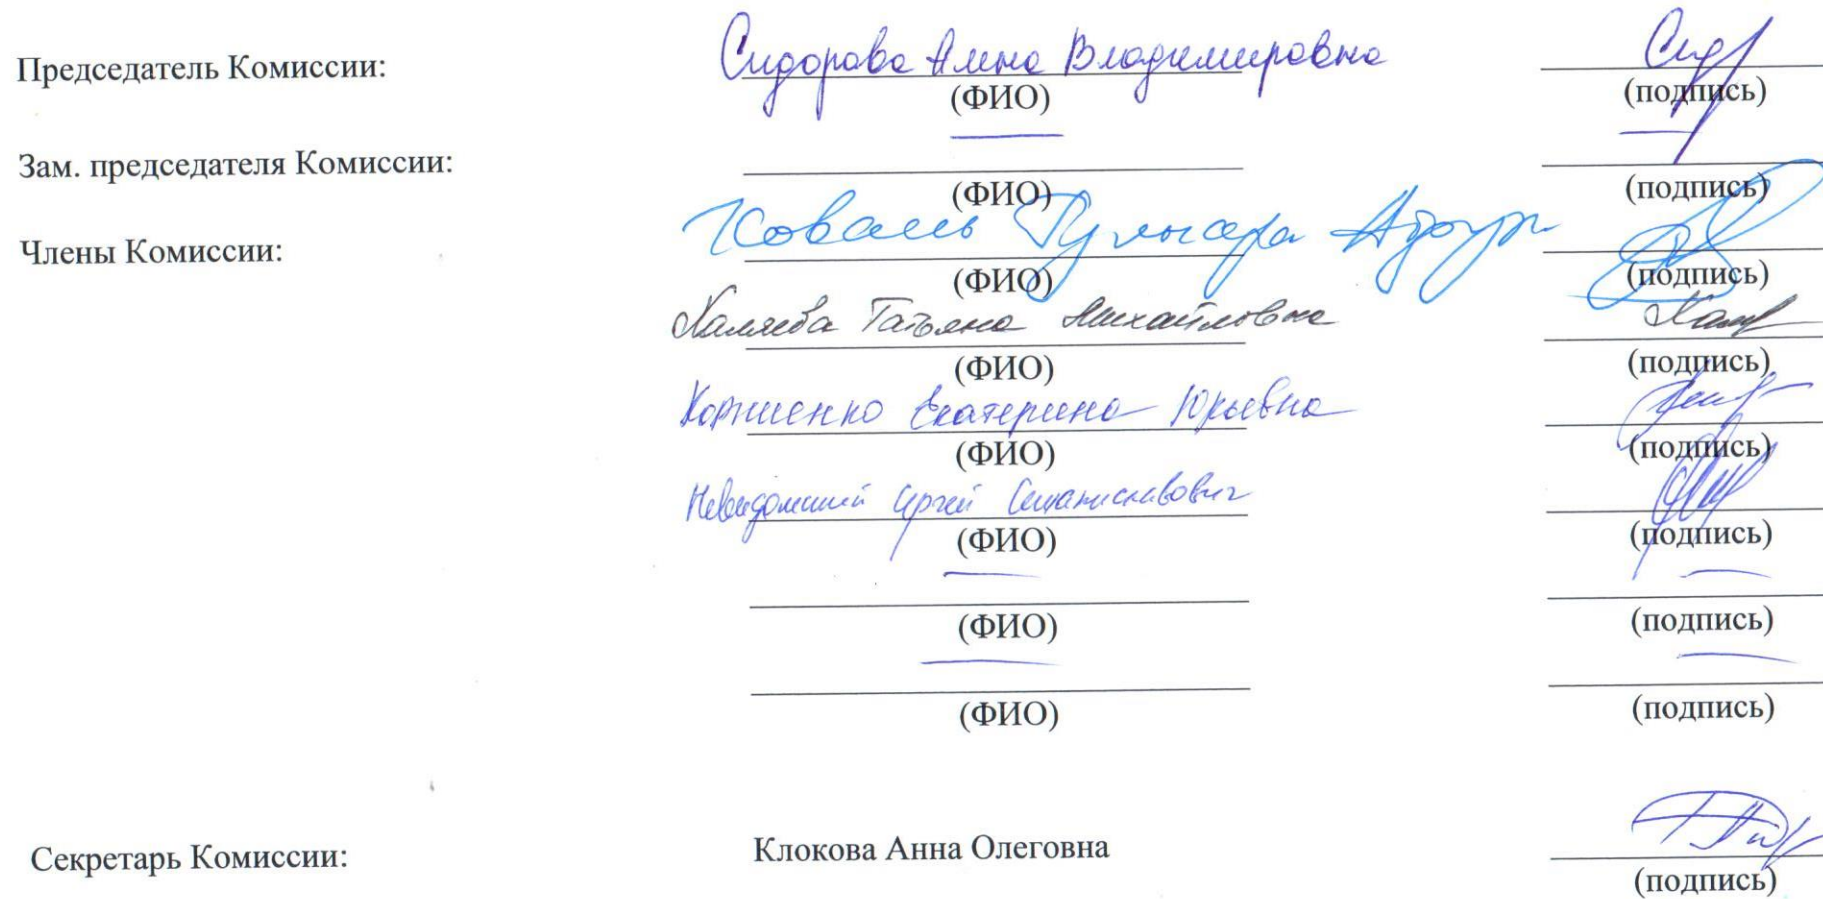 Председатель Комиссии: Сидорова Алена Владимировна
(ФИО) (подпись)
Зам. председателя Комиссии:
(ФИО) (подпись)
Члены Комиссии: Коваль Гульсара
(ФИО) (подпись)
Татьяна Михайловна
(ФИО) (подпись)
Корниенко Екатерина Юрьевна
(ФИО) (подпись)
Неведомский Сергей Станиславович
(ФИО) (подпись)
(ФИО) (подпись)
(ФИО) (подпись)
Секретарь Комиссии: Клокова Анна Олеговна
(подпись)